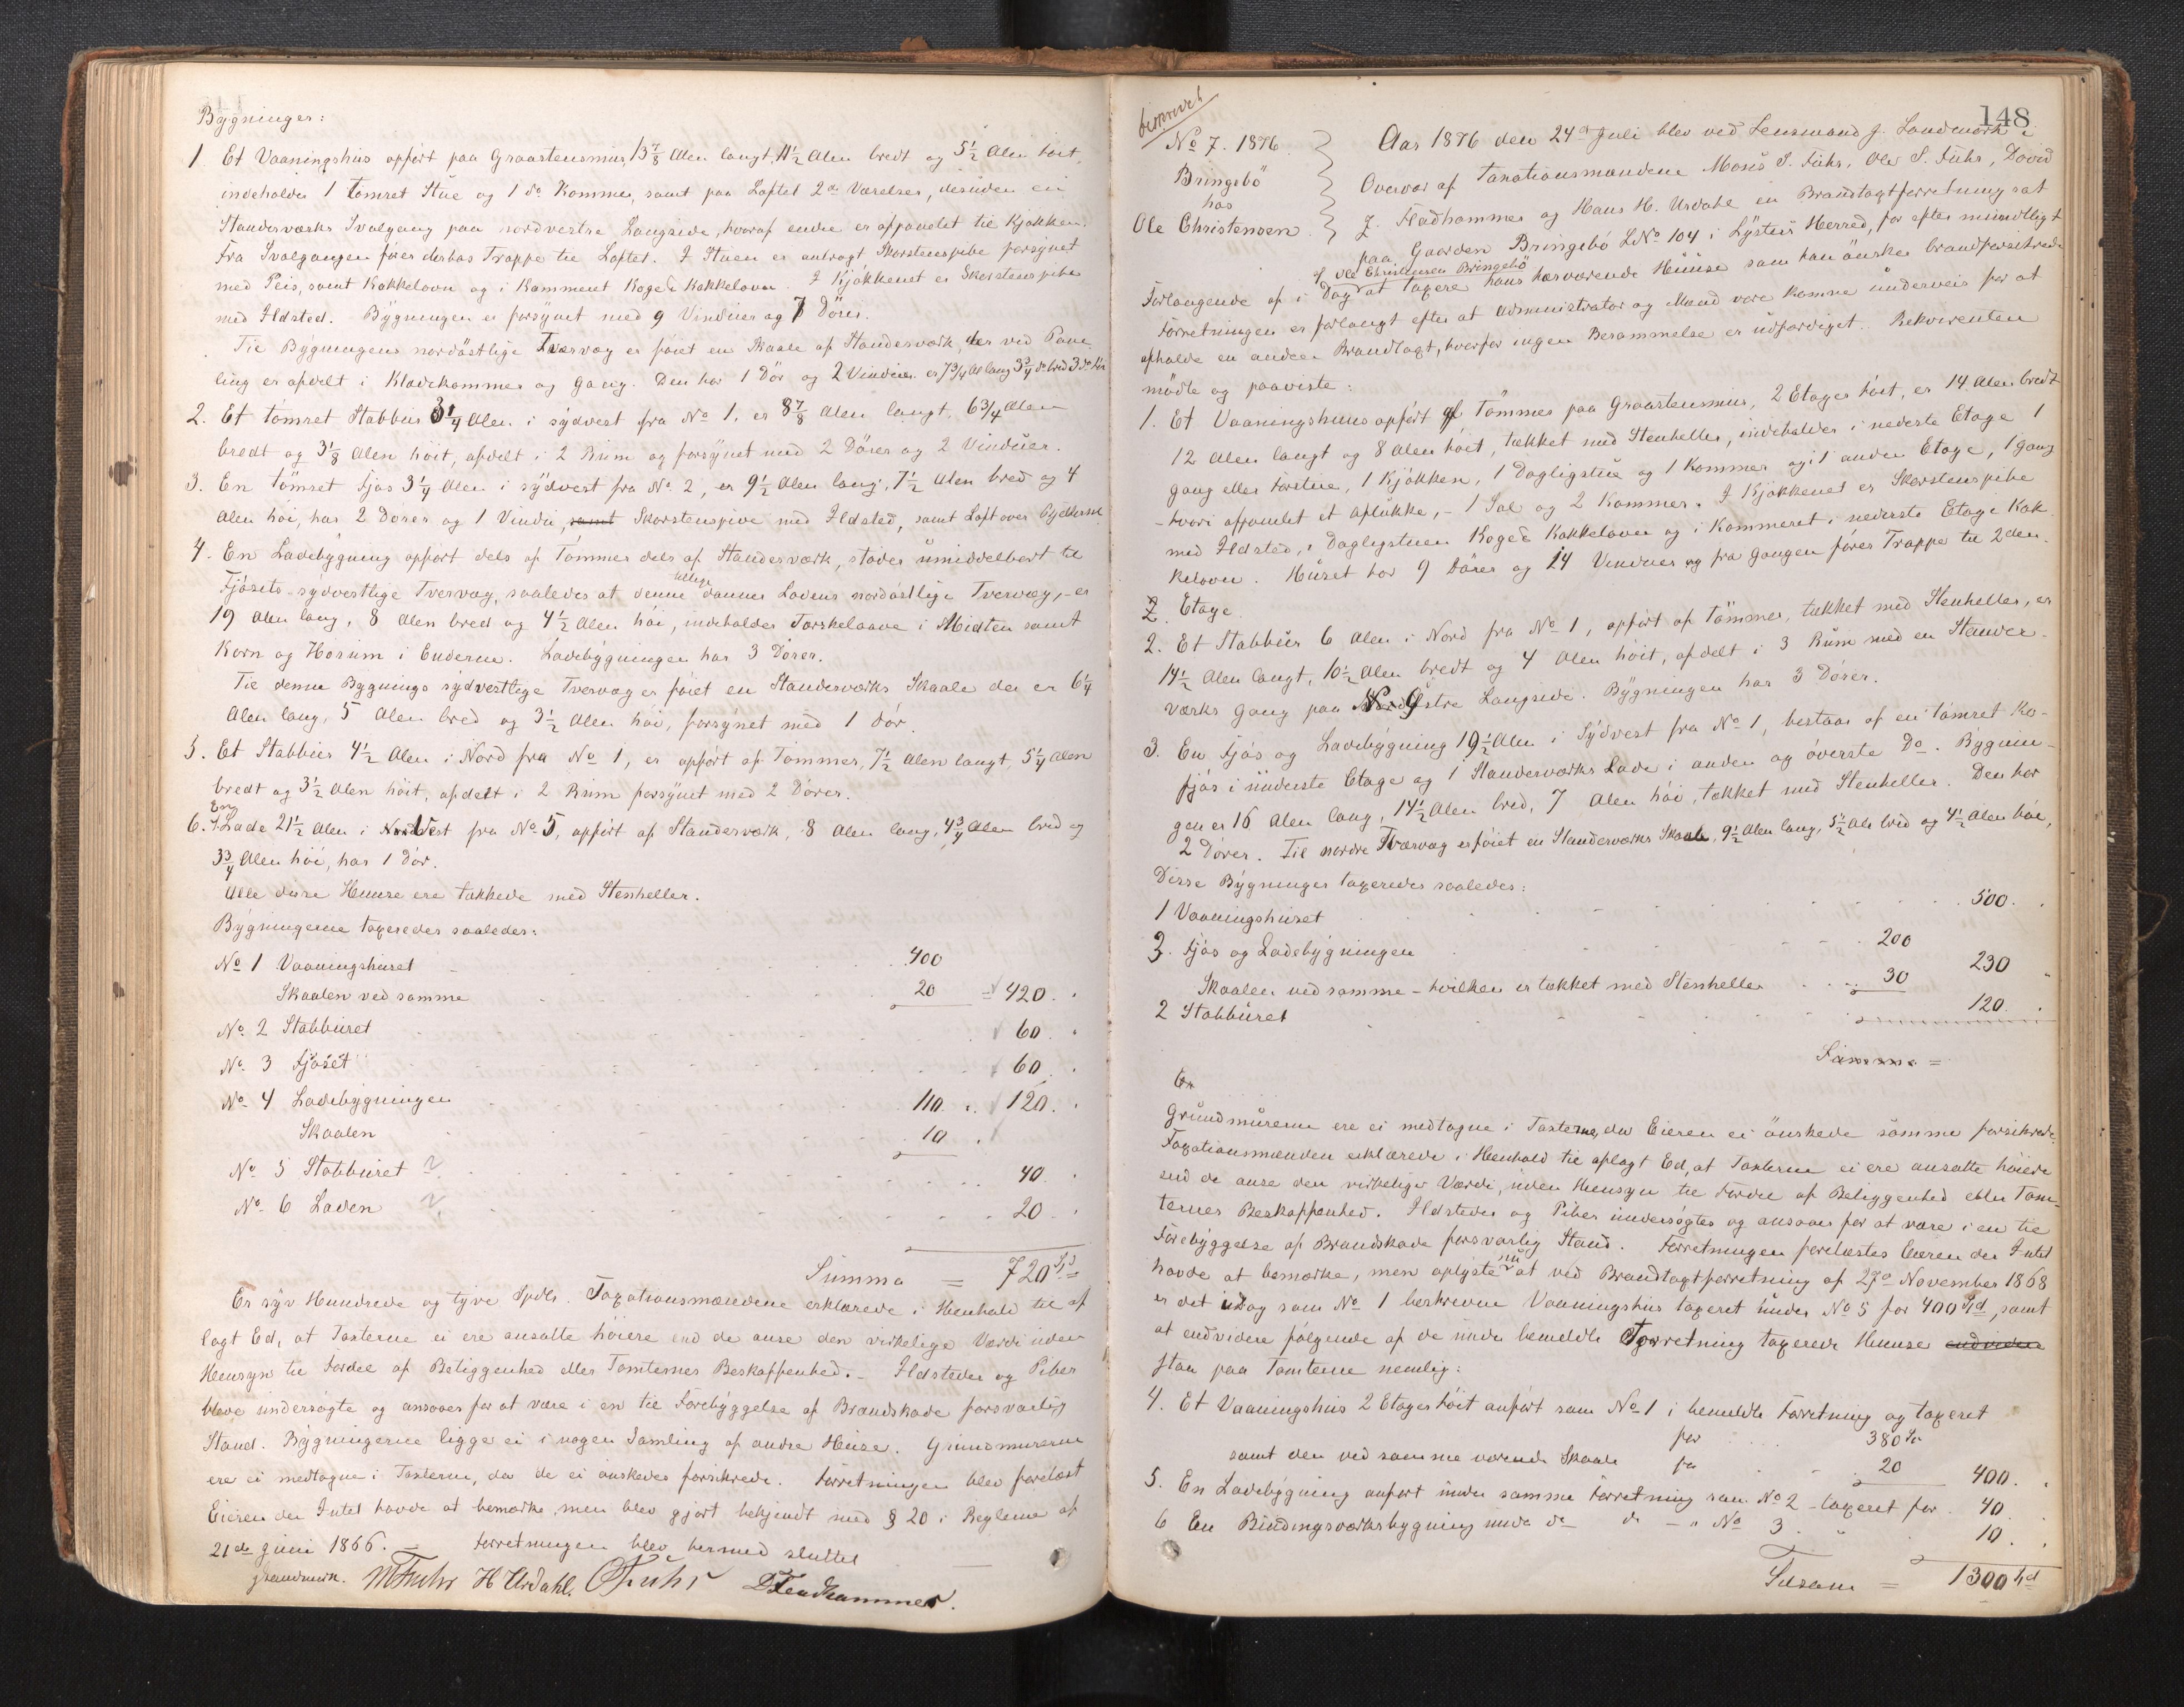 Bygninger:
1. Et Vaaningshus opført paa Graastensmur, 13 7/8 Alen langt, 11 1/2 Alen bredt og 5 1/2 Alen høit,
indeholder 1 tømret Stue og 1 do Kammer, samt paa Loftet 2de Værelser, desuden en
Standerværks Svalgang paa nordvestre Langside, hvoraf endre er afpanelet til Kjøkken.
Fra Svalgangen føres des Trappe til Loftet. I Stuen er anbragt Skorstenspibe forsynet
med Peis, samt Kakkelovn og i Kammeret Koge & Kakkelovn. I Kjøkkenet er Skorstenspibe
med Ildsted. Bygningen er forsynet med 9 Vinduer og 7 Dörer.
Til Bygningens nordöstlige Tværvæg er föiet en Skaale af Standerværk, der ved Pane-
ling er afdelt i Klædekammer og Gang. Den har 1 Dör og 2 Vinduer. er 7 3/4 Al lang 3 3/4 do bred 3 do høi
2. Et tømret Stabbur 3 1/4 Alen i sydvest fra No 1, er 8 7/8 Alen langt, 6 3/4 Alen
bredt og 3 1/8 Alen höit, afdelt i 2 Rum og forsynet med 2 Dörer og 2 Vinduer.
3. En tömret Fjös 3 1/4 Alen i sydvest fra No 2, er 9 1/2 Alen lang, 7 1/2 Alen bred og 4
Alen höi, har 2 Dörer og 1 Vindu, samt Skorstenspive med Ildsted, samt Loft over Bjelkerne
4. En Ladebygning opført dels af Tömmer dels af Standerværk, støder umiddelbart til
Fjösets sydvestlige Tvervæg, saaledes at denne tillige danner Ladens nordöstlige Tvervæg, - er
19 Alen lang, 8 Alen bred og 4 1/2 Alen höi, indeholder Tørskelaave i Midten samt
Korn og Hörum i Enderne. Ladebygningen har 3 Dörer.
Til denne Bygnings sydvestlige Tvervæg er föiet en Standerværks Skaale der er 6 1/4
Alen lang, 5 Alen bred og 3 1/2 Alen höi, forsynet med 1 Dör.
5. Et Stabbur 4 1/2 Alen i Nord fra No 1, er opført af Tömmer, 7 1/2 Alen langt, 5 1/4 Alen
bredt og 3 1/2 Alen höit, afdelt i 2 Rum forsynet med 2 Dörer.
6. En Lade 21 1/2 Alen i fra No 5, opfört af Standerværk, 8 Alen lang, 4 3/4 Alen bred og
3 3/4 Alen höi, har 1 Dör.
Alle disse Huuse ere tækkede med Stenheller.
Bygningerne taxeredes saaledes:
No 1 Vaaningshuset 400
Skaalen ved samme 20 = 420.
No 2 Stabburet 60.
No 3 Fjöset 60.
No 4 Ladebygningen 110. 120.
Skaalen 10.
No 5 Stabburet 40.
No 6 Laden 20.
Summa = 720 Spd
Er syv Hundrede og tyve Spdlr. Taxationsmændene erklærede i Henhold til af-
lagt Ed, at Taxterne ei ere ansatte höiere end de anse den virkelige Værdi uden
Hensyn til Fordel af Beliggenhed eller Tomternes Beskaffenhed. - Ildsteder og Piber
bleve undersögte og ansaaes for at være i en til Forebyggelse af Brandskade forsvarlig
Stand. Bygningerne ligge ei i nogen Samling af andre Huse. Grundmurene
ere ei medtagne i Taxterne, da de ei önskedes forsikrede. Forretningen blev forelæst
Eieren der Intet havde at bemærke, men blev gjort bekjendt med § 20 i Reglem. af
21de Juni 1866. - Forretningen blev hermed sluttet
JLandmark. MFuhr H Urdahl. OFuhr DFladhammer.
148
beskrevet
No 7. 1876.
Bringebö
hos
Ole Christensen
Aar 1876 den 24de Juli blev ved Lensmand J. Landmark i
Overvær af Taxationsmændene Moses S. Fuhr, Ole S. Fuhr, David
J. Fladhammer og Hans H. Urdahl en Brandtaxtforretning sat
paa Gaarden Bringebö LNo 104 i Lysters Herred, for efter mundtligt
Forlangende af i Dag af Ole Christensen Bringebö at taxere hans hærværende Huuse som han önsker brandforsikrede
Forretningen er forlangt efter at Administrator og Mænd vare komne underveis for at
afholde en anden Brandtaxt, hvorfor ingen Berammelse er udfærdiget. Rekvirenten
mödte og paaviste:
1. Et Vaaningshuus opfört af Tömmer paa Graastensmur, 2 Etager höit, er 14 Alen bredt
12 Alen langt og 8 Alen höit, tækket med Stenheller, indeholder i nederste Etage 1
Gang eller Forstue, 1 Kjökken, 1 Dagligstue og 1 Kammer og i anden Etage, 1 Gang
- hvori afpanelet et Aflukke, - 1 Sal og 2 Kammer. I Kjökkenet er Skorstenspibe
med Ildsted, i Dagligstuen Koge & Kakkelovn og i Kammeret i nederste Etage Kak-
kelovn. Huset har 9 Dörer og 14 Vinduer og fra Gangen föres Trappe til 2den
Etage.
2. Et Stabbur 6 Alen i Nord fra No 1, opfört af Tömmer, tækket med Stenheller, er
14 1/2 Alen langt, 10 1/2 Alen bredt og 4 Alen höit, afdelt i 3 Rum med en Stander-
værks Gang paa Langside. Bygningen har 3 Dörer.
3. En Fjös og Ladebygning 19 1/2 Alen i Sydvest fra No 1, bestaar af en tömret Ko-
fjös i underste Etage og 1 Standerværks Lade i anden og överste Do. Bygnin-
gen er 16 Alen lang, 14 1/2 Alen bred, 7 Alen höi, tækket med Stenheller. Den har
2 Dörer. Til nordre Tværvæg er föiet en Standerværks Skaale, 9 1/2 Alen lang, 5 1/2 Ale bred og 4 1/2 Alen höi,
Disse Bygninger taxeredes saaledes:
1 Vaaningshuset 500.
3. Fjös og Ladebygningen 200
Skaalen ved samme - hvilken er tækket med Stenheller 30 230
2 Stabburet 120.
Summa =
Grundmurene ere ei medtagne i Taxterne, da Eieren ei önskede samme forsikrede.
Taxationsmænden erklærede i Henhold til aflagt Ed, at Taxterne ei ere ansatte höiere
end de anse den virkelige Værdi, uden Hensyn til Fordel af Beliggenhed eller Tom-
ternes Beskaffenhed. Ildsteder og Piber undersögtes og ansaaes for at være i en til
Forebyggelse af Brandskade forsvarlig Stand. Forretningen forelæstes Eieren der Intet
havde at bemærke, men oplyste nu at ved Brandtaxtforretning af 27de November 1868
er det idag som No 1 beskrevne Vaaningshus taxeret under No 5 for 400 Spd, samt
at endvidere fölgende af de under bemeldte Forretning taxerede Huuse endvidere
staa paa Tomterne nemlig:
4. Et Vaaningshus 2 Etager höit anfört som No 1 i bemeldte Forretning og taxeret
for 380 Sp
samt den ved samme værende Skaale for 20 400.
5. En Ladebygning anfört under samme Forretning som No 2 - taxeret for 40.
6 En Bindingsværksbygning under do do - " No 3. " 10.
Tilsam = 1300 Spd